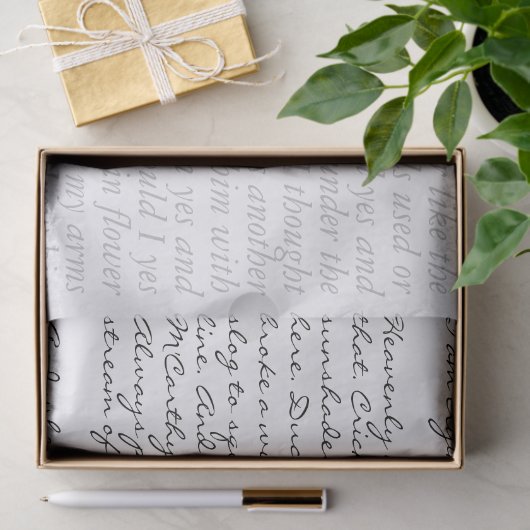 like the
s used or
yes and
under the
I thought
another
him with
yes and
uld I yes
in flower
my arms
Heavenly
that. Cric
sunshade
here. Duc
broke a wi
slog to sq
line. And
M'Carthy
Always p
stream of